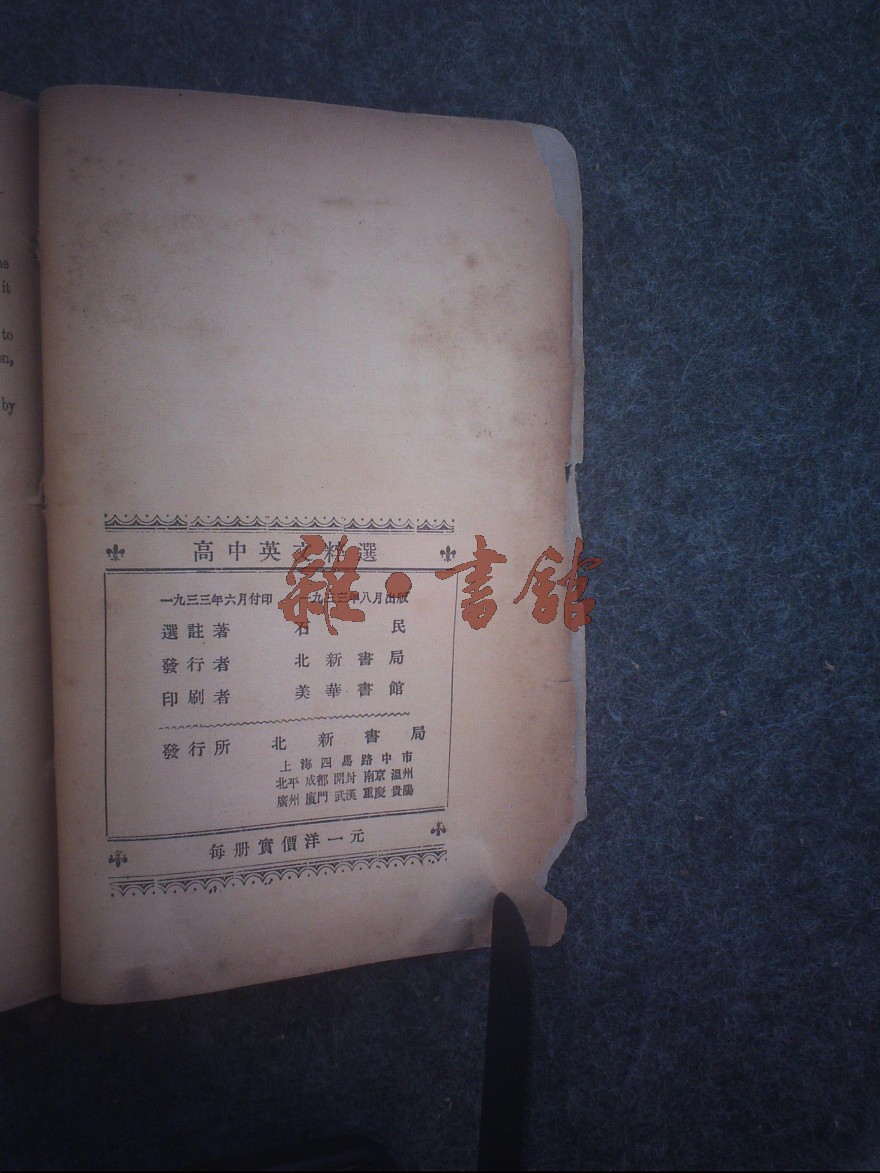 as
it
to
on,
by
高中英文粹選
一九三三年六月付印 一九三三年八月出版
選註著 石民
發行者 北新書局
印刷者 美華書館
發行所 北新書局
上海四馬路中市
北平 成都 開封 南京 溫州
廣州 廈門 武漢 重慶 貴陽
每册實價洋一元
雜·書館